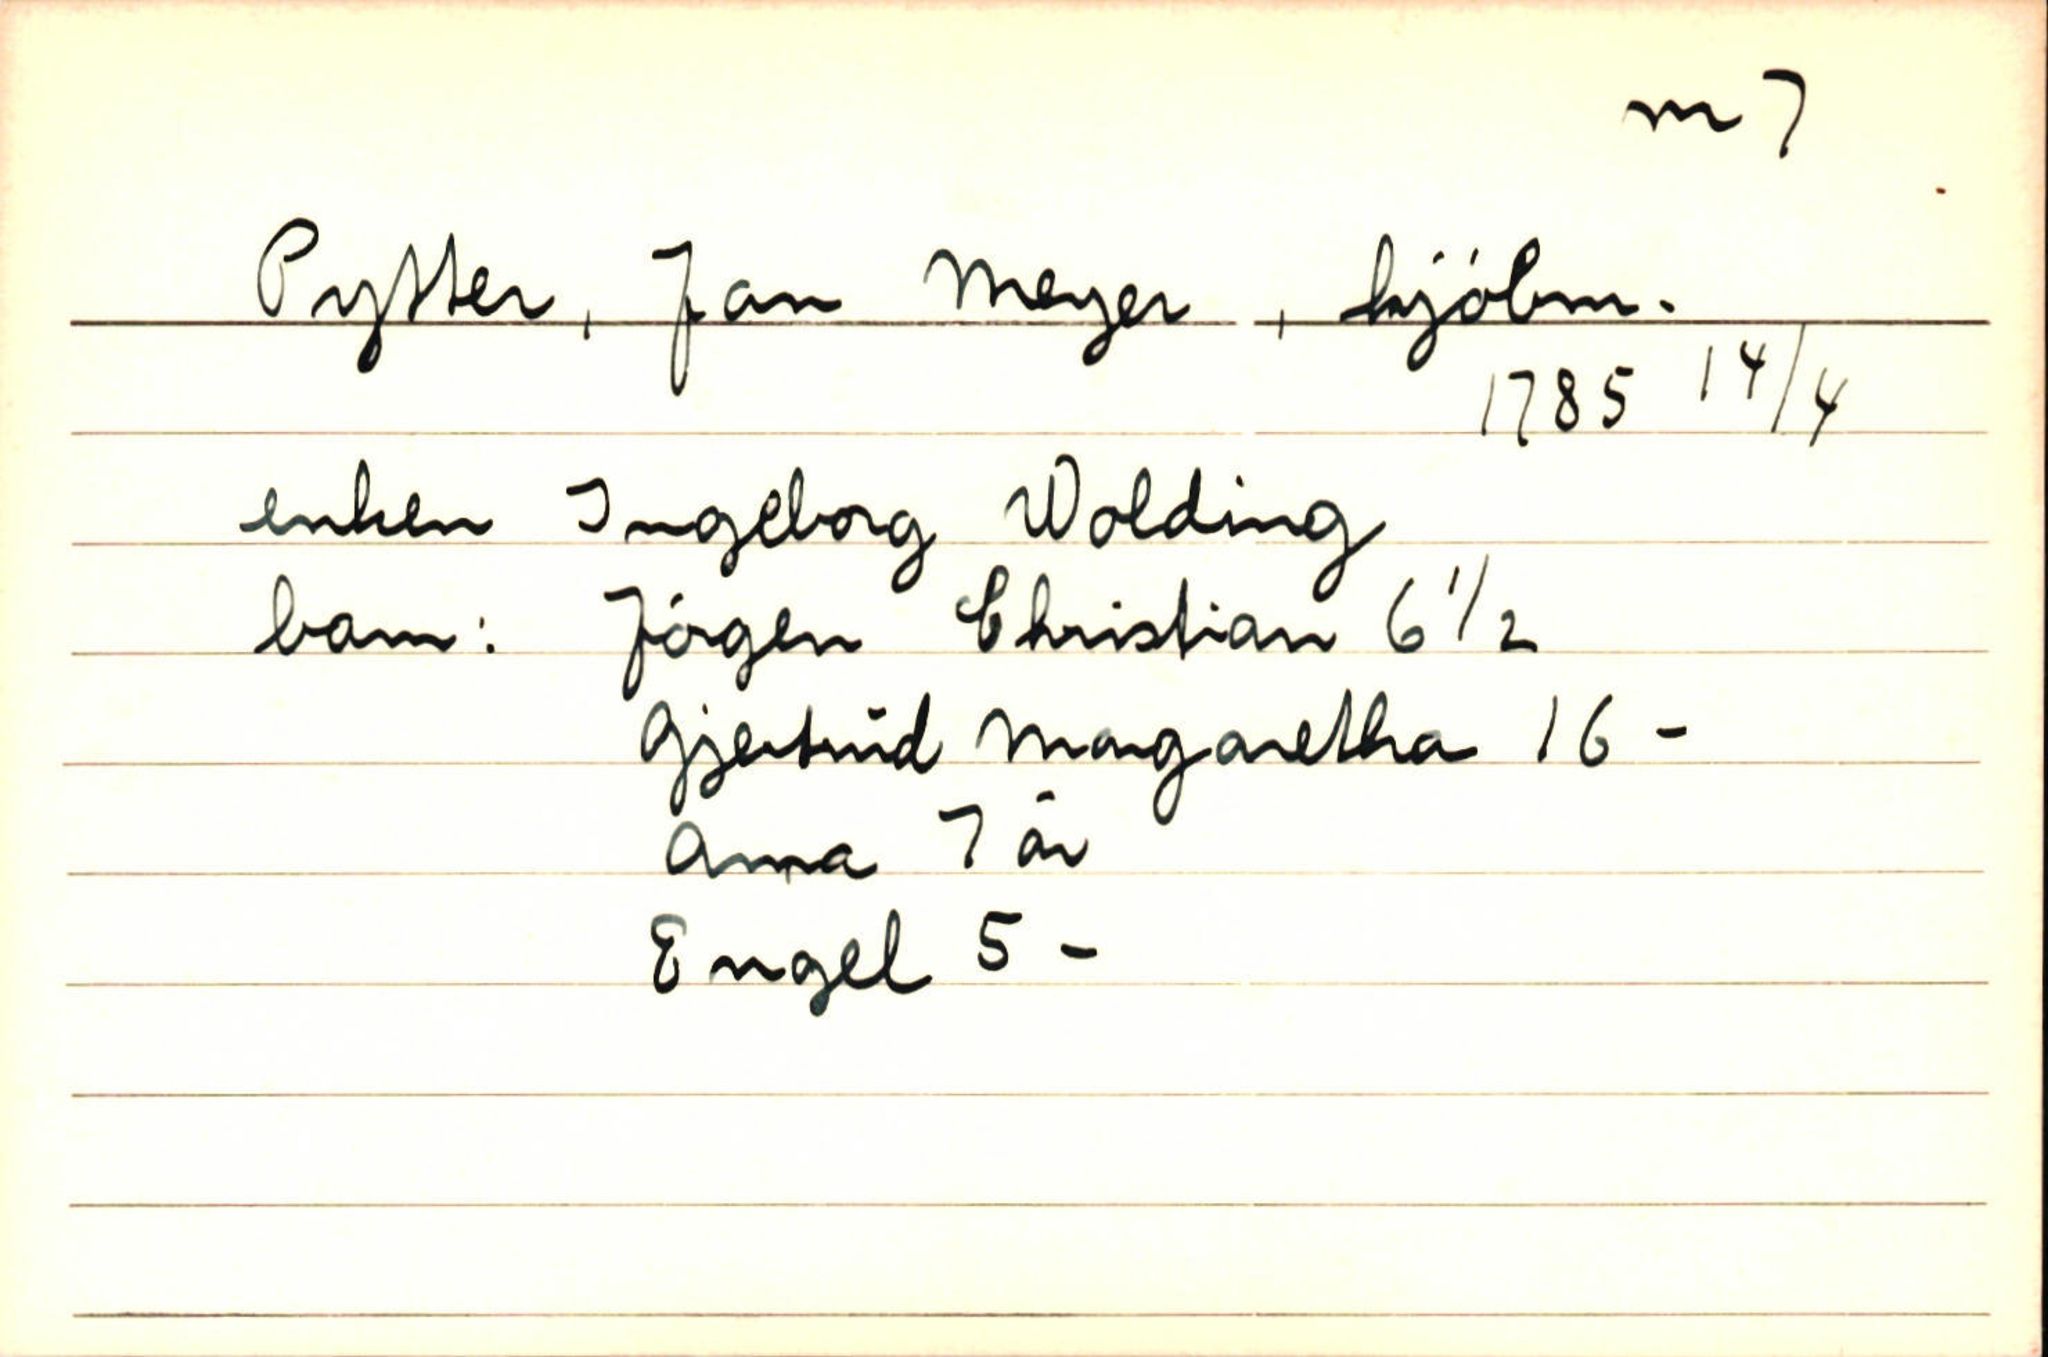 m 7
Pytter, Jan Meyer, kjöbm.
1785 14/4
enken Ingeborg Wolding
barn: Jörgen Christian 6 1/2
Gjertrud Margaretha 16 -
Anna 7 år
Engel 5 -